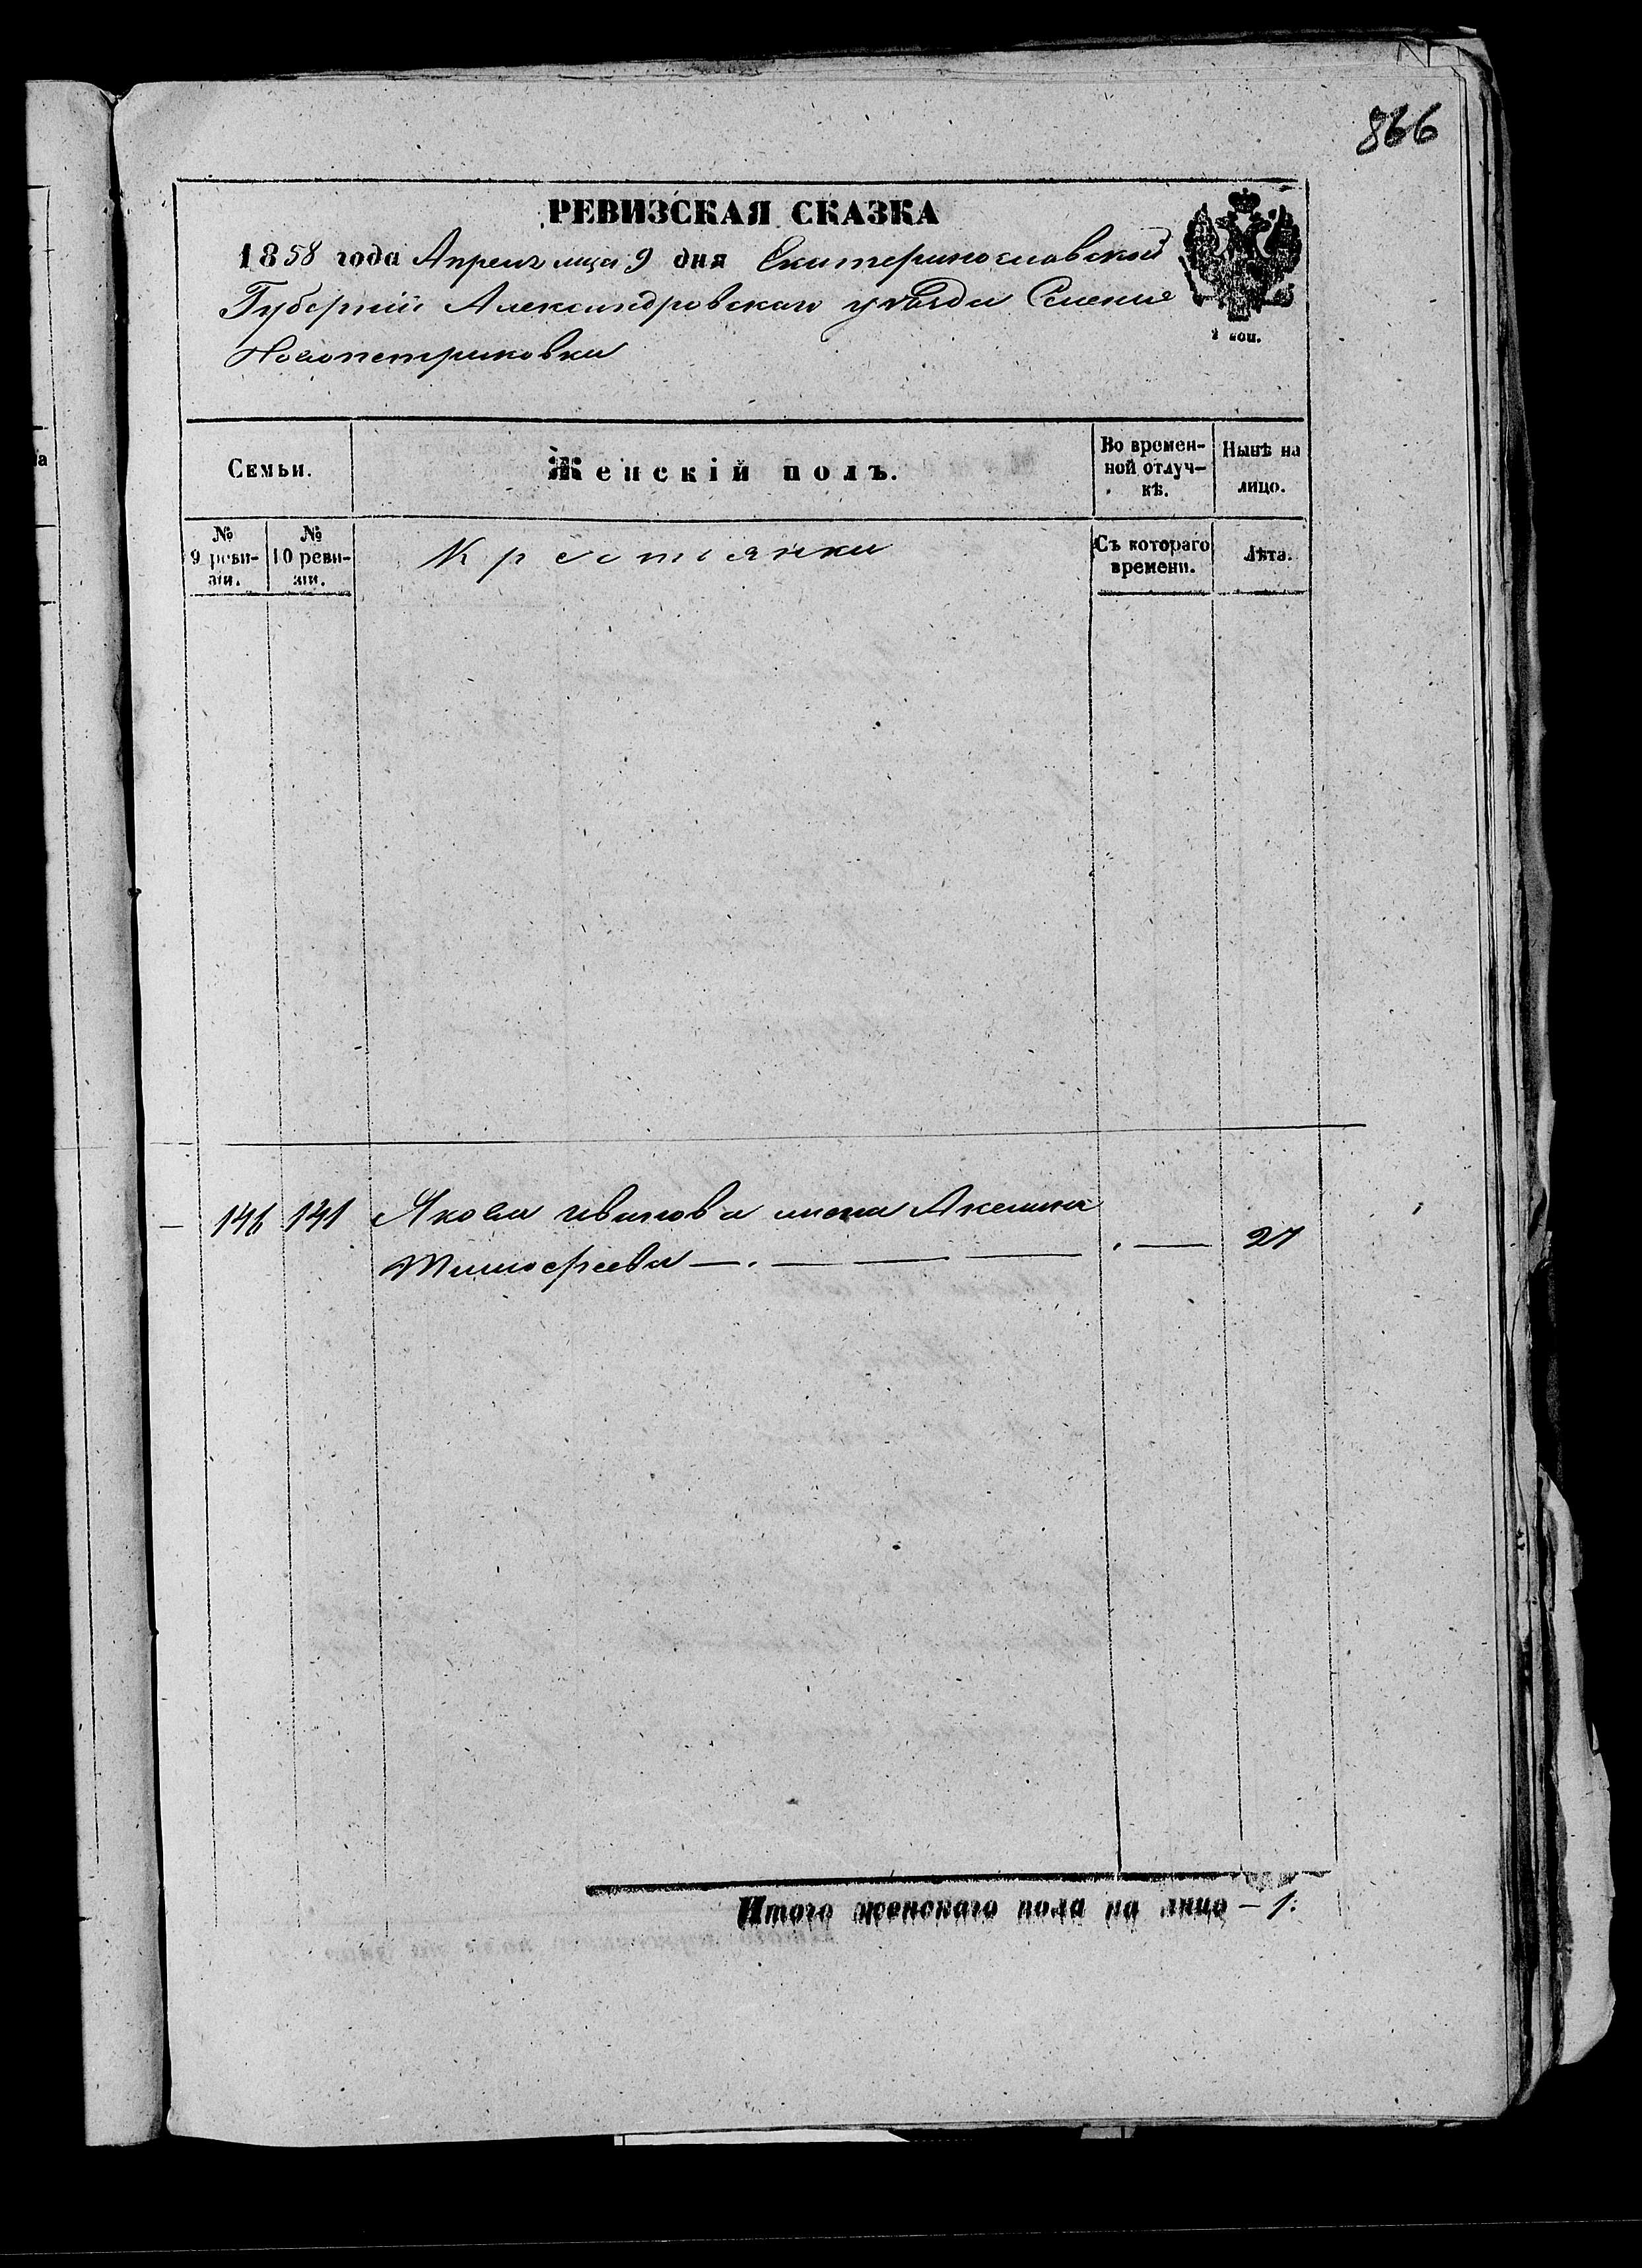 866
РЕВИЗСКАЯ СКАЗКА
1858 года Апреля мца 9 дня Екатеринославской
Губерніи Александровскаго уѣзда Селенія
Новопетриковки
2 коп.
Семьи.
Женскій полъ.
Во времен-
ной отлуч-
кѣ.
Нынѣ на
лицо.
№
9 реви-
зіи.
№
10 реви-
зіи.
Крестьянки
Съ котораго
времени.
Лѣта.
146 141 Якова иванова жена Акелина
Тимофеева — . — — — . — 27
Итого женскаго пола на лицо — 1.